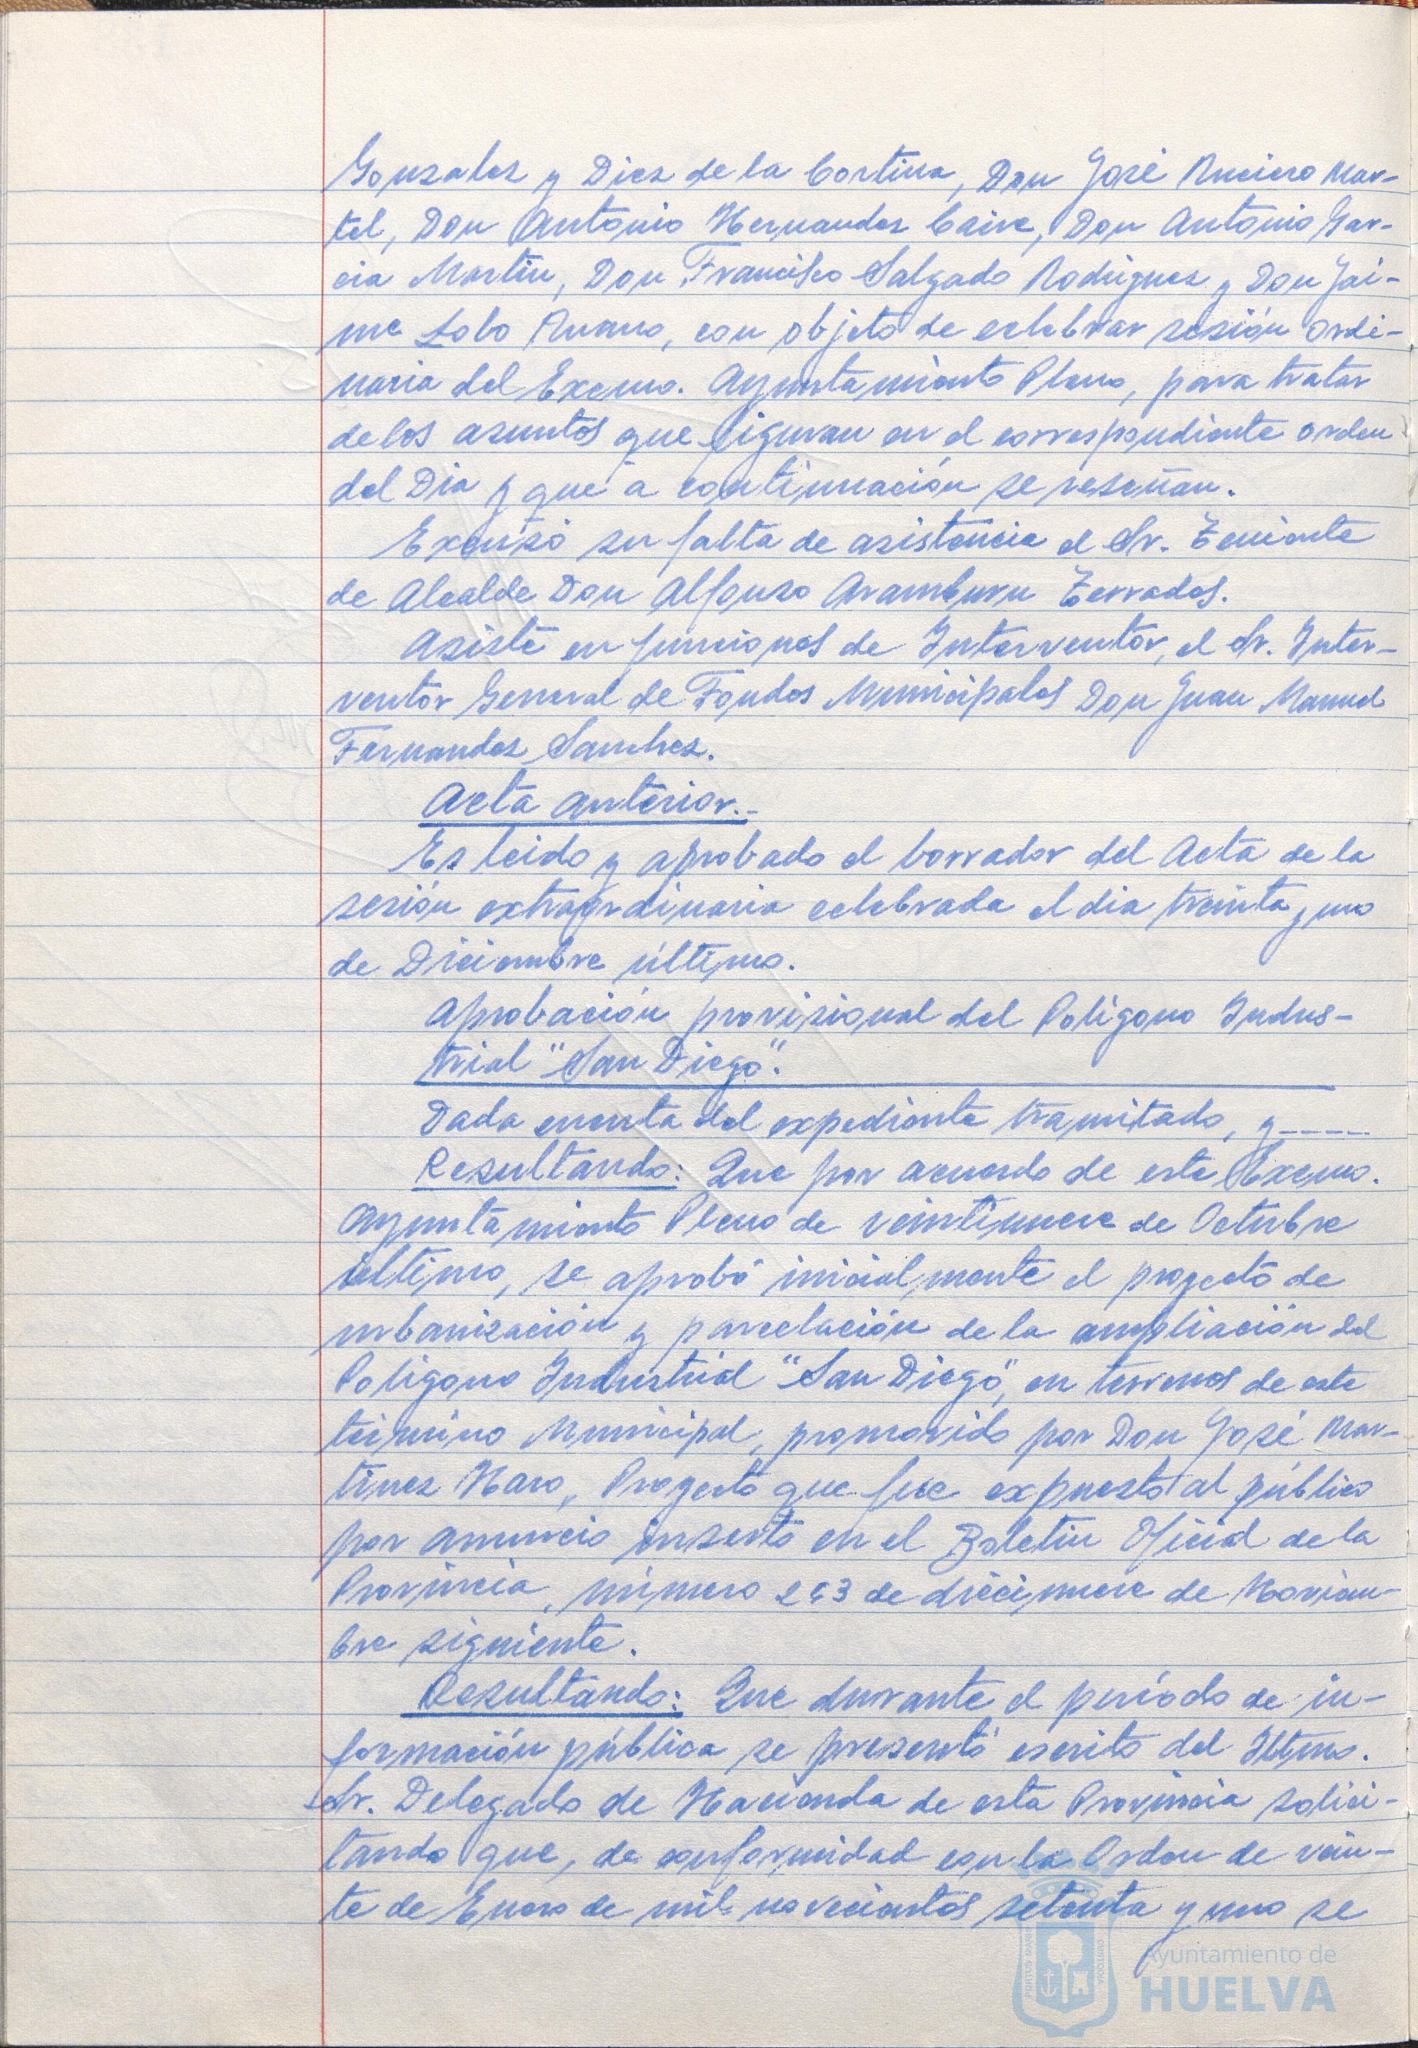 Gonzalez y Diez de la Cortina, Don José Anciero Mar-
tel, Don Antonio Hernandez Caire, Don Antonio Gar-
cia Martin, Don Francisco Salgado Rodriguez y Don Jai-
me Lobo Ruano, con objeto de celebrar sesión ordi-
naria del Excmo. Ayuntamiento Pleno, para tratar
de los asuntos que figuran en el correspondiente orden
del Dia y que a continuación se reseñan.
Excusó su falta de asistencia el Sr. Teniente
de Alcalde Don Alfonso Aramburu Terrades.
Asiste en funciones de Interventor, el Sr. Inter-
ventor General de Fondos Municipales Don Juan Manuel
Fernandez Sanchez.
Acta anterior.-
Es leido y aprobado el borrador del Acta de la
sesión extraordinaria celebrada el dia treinta y uno
de Diciembre último.
Aprobación provisional del Poligono Indus-
trial "San Diego".
Dada cuenta del expediente tramitado, y-----
Resultando: Que por acuerdo de este Excmo.
Ayuntamiento Pleno de veintinueve de Octubre
último, se aprobó inicialmente el proyecto de
urbanización y parcelación de la ampliación del
Poligono Industrial "San Diego", en terrenos de este
término Municipal, promovido por Don José Mar-
tinez Haro, Proyecto que fue expuesto al público
por anuncio inserto en el Boletin Oficial de la
Provincia, número 263 de diecinueve de Noviem-
bre siguiente.
Resultando: Que durante el período de in-
formación pública se presentó escrito del Iltmo.
Sr. Delegado de Hacienda de esta Provincia solici-
tando que, de conformidad con la Orden de vein-
te de Enero de mil novecientos setenta y uno se
Ayuntamiento de
HUELVA